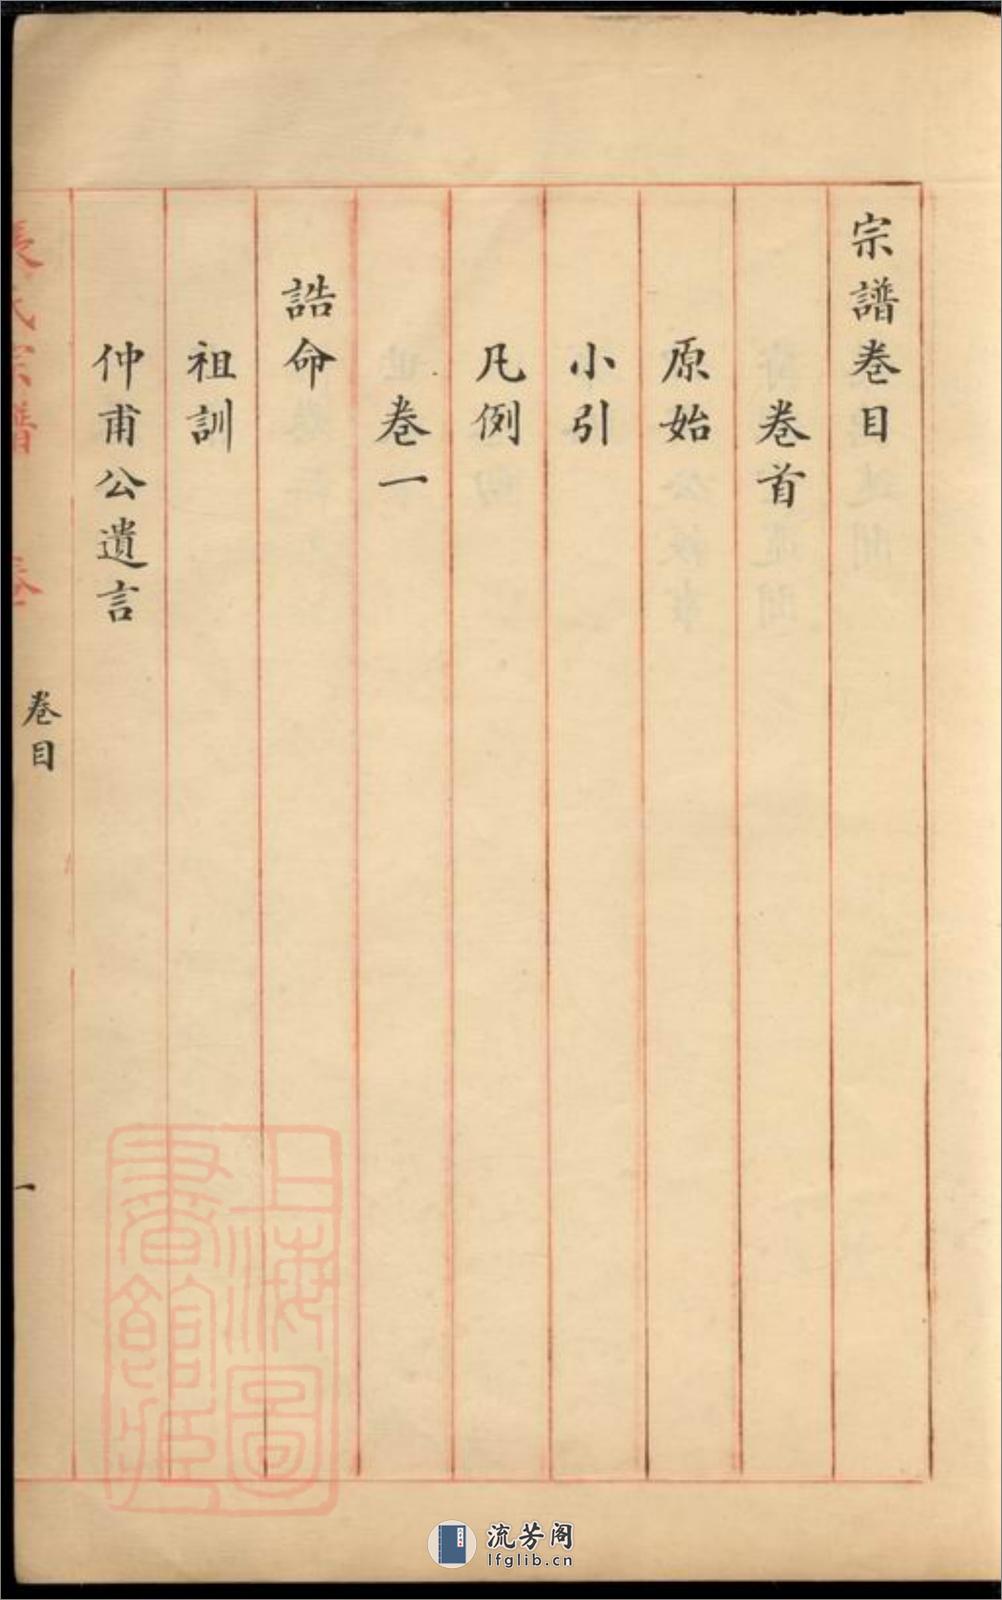 宗譜卷目
卷首
原始
小引
凡例
卷一
誥命
祖訓
仲甫公遺言
張氏宗譜 卷
卷目
一
上海圖書館藏
流芳阁
lfglib.cn